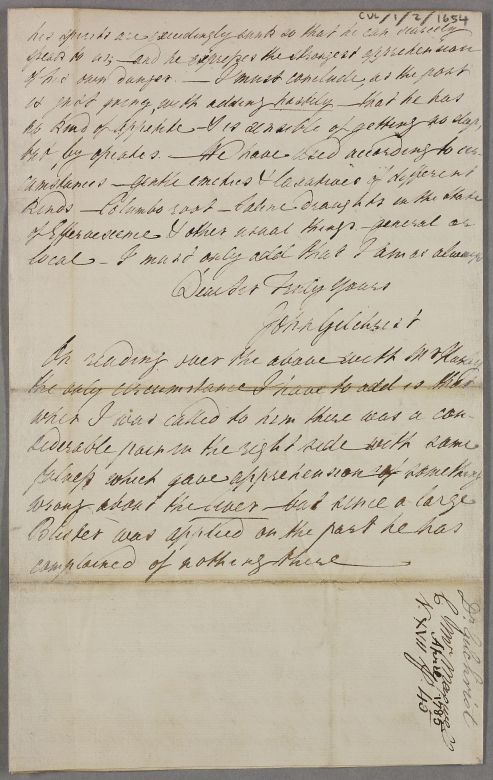 CUL/1/2/1654
his spirits are exceedingly sunk so that he can scarcely
speak to us, and he expresses the strongest apprehension
of his own danger. — I must conclude, as the post
is just going, with adding hastily — that he has
no kind of appetite & is sensible of getting no sleep,
but by opiates. — We have used according to cir-
cumstances — gentle emetics & laxatives of different
kinds — Columbo root — Saline draughts in the state
of Effervescence & other usual things — general or
local — I must only add that I am as always
Dear Sir Truly Yours
John Gilchrist
On reading over the above with Mr
the only circumstance I have to add is that
when I was called to him there was a con-
siderable pain in the right side with some
which gave apprehension of something
wrong about the liver — but since a large
Blister was applied on the part he has
complained of nothing there
Dr. Gilchrist
April 1785
V. XVII p 45